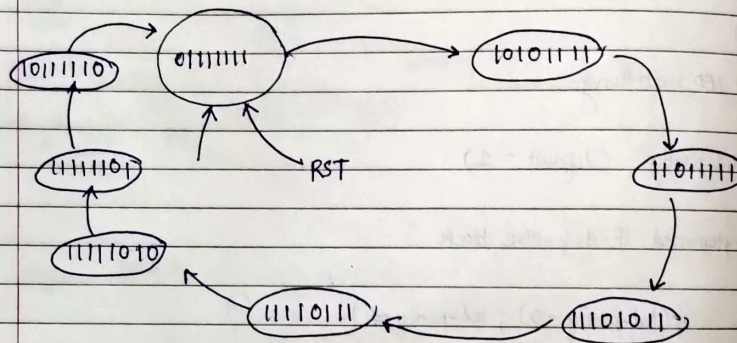 01111111
10101111
11011111
11101011
11110111
11111010
11111101
10111110
RST